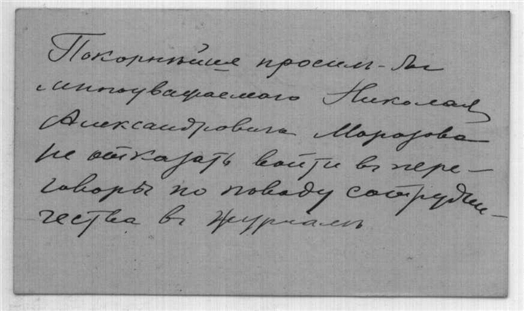 Покорнѣйше просим-бы
многоуважаемого Николая
Александровича Морозова
не отказать войти въ пере-
говоры по поводу сотрудни-
чества въ журналѣ